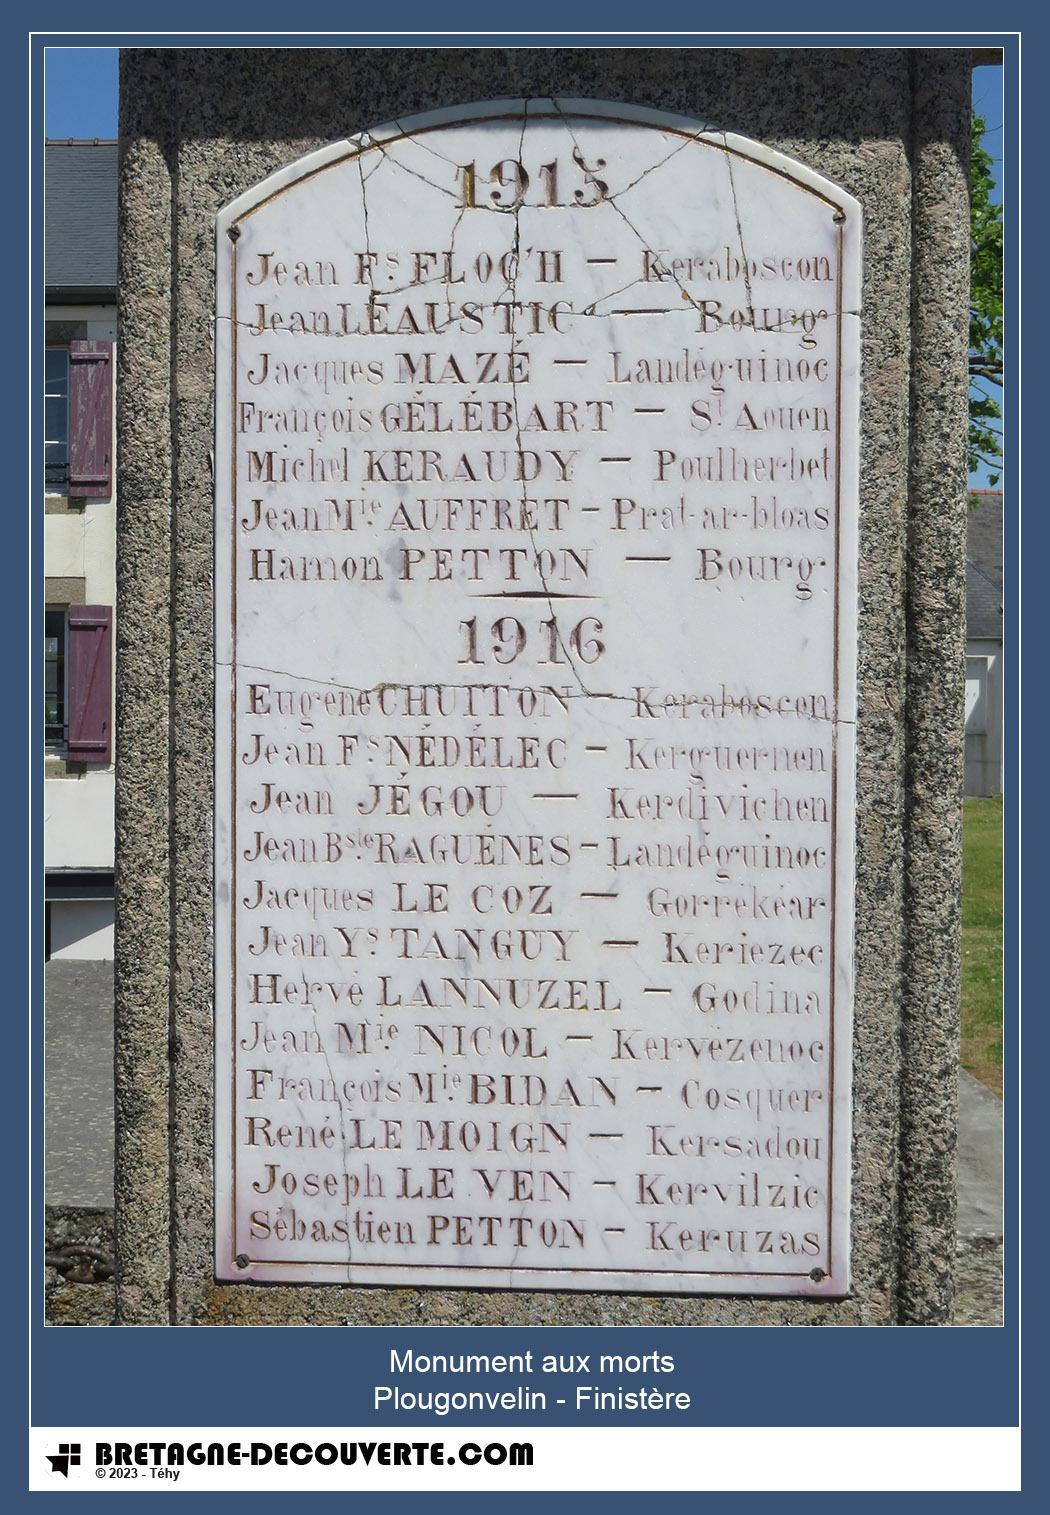 1915
Jean Fs. FLOC'H — Keraboscon
Jean LÉAUSTIC — Bourg
Jacques MAZÉ — Landéguinoc
François GÉLÉBART — St. Aouen
Michel KERAUDY — Poulherbet
Jean Mie. AUFFRET - Prat-ar-bloas
Hamon PETTON — Bourg
1916
Eugène CHUITON — Keraboscon
Jean Fs. NÉDÉLEC - Kerguernen
Jean JÉGOU — Kerdivichen
Jean Bste. RAGUÉNÉS - Landéguinoc
Jacques LE COZ — Gorrékéar
Jean Ys. TANGUY — Keriezec
Hervé LANNUZEL — Godina
Jean Mie. NICOL — Kervézenoc
François Mie. BIDAN - Cosquer
René LE MOIGN — Kersadou
Joseph LE VEN - Kervilzic
Sébastien PETTON — Keruzas
Monument aux morts
Plougonvelin - Finistère
BRETAGNE-DECOUVERTE.COM
© 2023 - Téhy